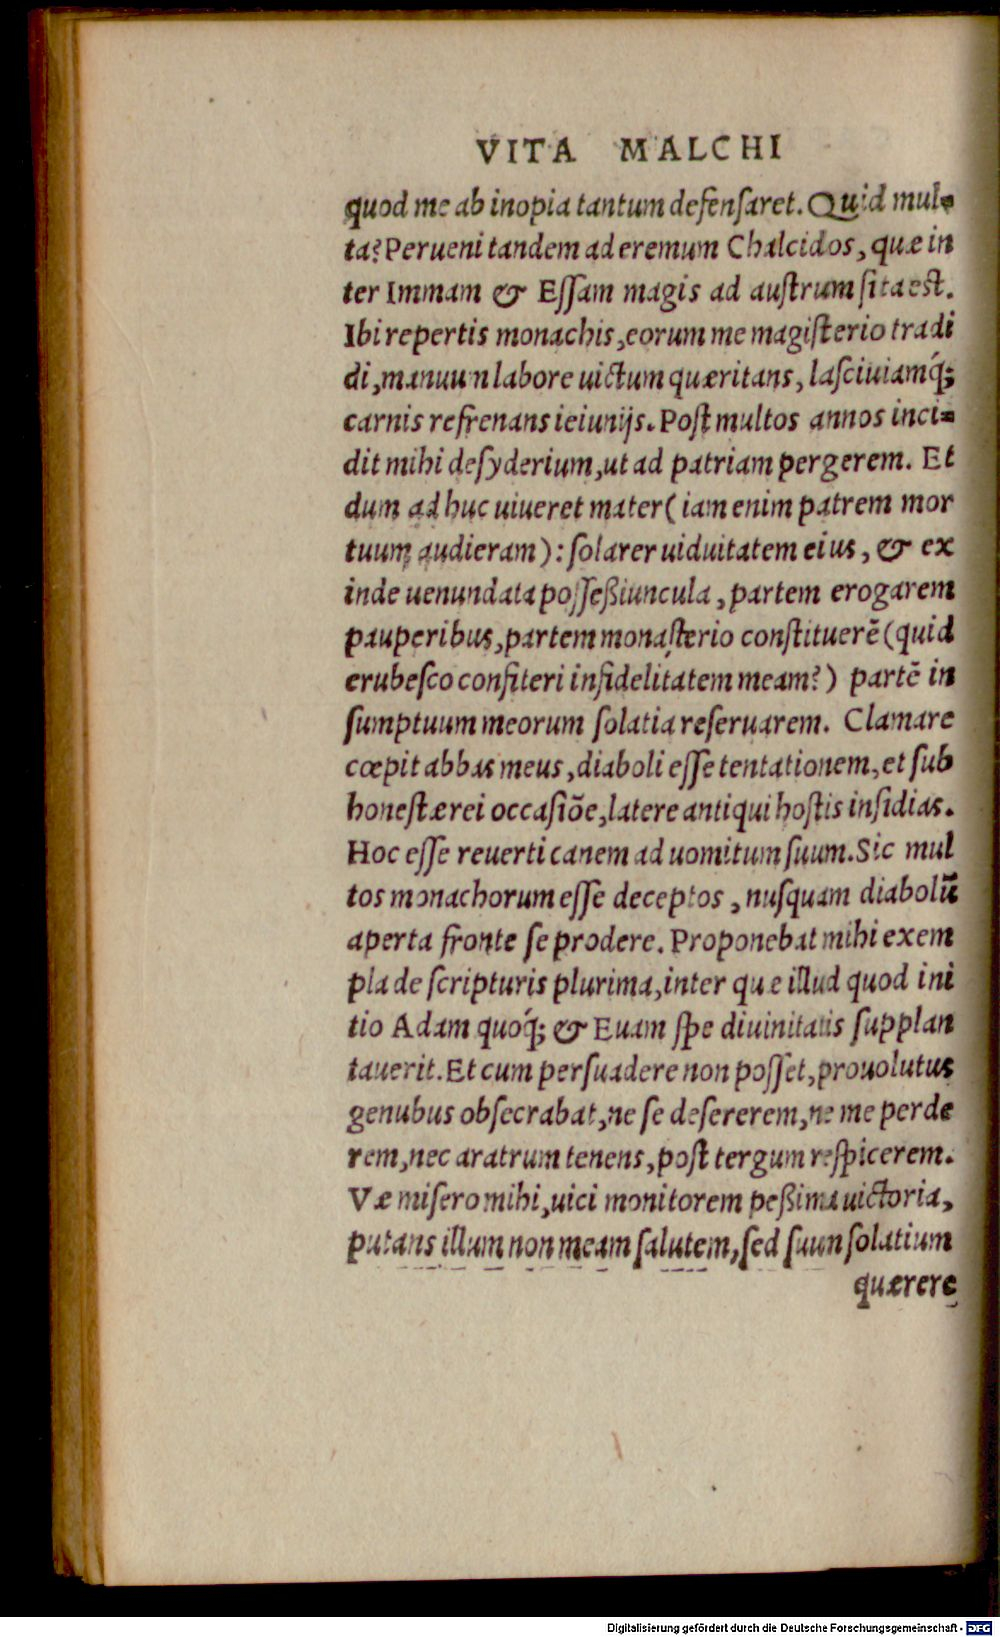 VITA MALCHI
quod me ab inopia tantum defenſaret. Quid mul-
ta? Perueni tandem ad eremum Chalcidos, quæ in
ter Immam & Eſſam magis ad auſtrum ſita est.
Ibi repertis monachis, eorum me magiſterio tradi
di, manuum labore uictum quæritans, laſciuiamq́;
carnis refrenans ieiunijs. Poſt multos annos inci-
dit mihi deſyderium, ut ad patriam pergerem. Et
dum adhuc uiueret mater (iam enim patrem mor
tuum audieram): ſolarer uiduitatem eius, & ex
inde uenundata poſſeßiuncula, partem erogarem
pauperibus, partem monaſterio conſtituerē (quid
erubeſco confiteri infidelitatem meam?) partē in
ſumptuum meorum ſolatia reſeruarem. Clamare
cœpit abbas meus, diaboli eſſe tentationem, et ſub
honeſtæ rei occaſiōe, latere antiqui hoſtis inſidias.
Hoc eſſe reuerti canem ad uomitum ſuum. Sic mul
tos monachorum eſſe deceptos, nuſquam diabolū
aperta fronte ſe prodere. Proponebat mihi exem
pla de ſcripturis plurima, inter quæ illud quod ini
tio Adam quoq́; & Euam ſpe diuinitatis ſupplan
tauerit. Et cum perſuadere non poſſet, prouolutus
genubus obſecrabat, ne ſe deſererem, ne me perde
rem, nec aratrum tenens, poſt tergum reſpicerem.
Væ miſero mihi, uici monitorem peßima uictoria,
putans illum non meam ſalutem, ſed ſuun ſolatium
quærere
Digitalisierung gefördert durch die Deutsche Forschungsgemeinschaft - DFG